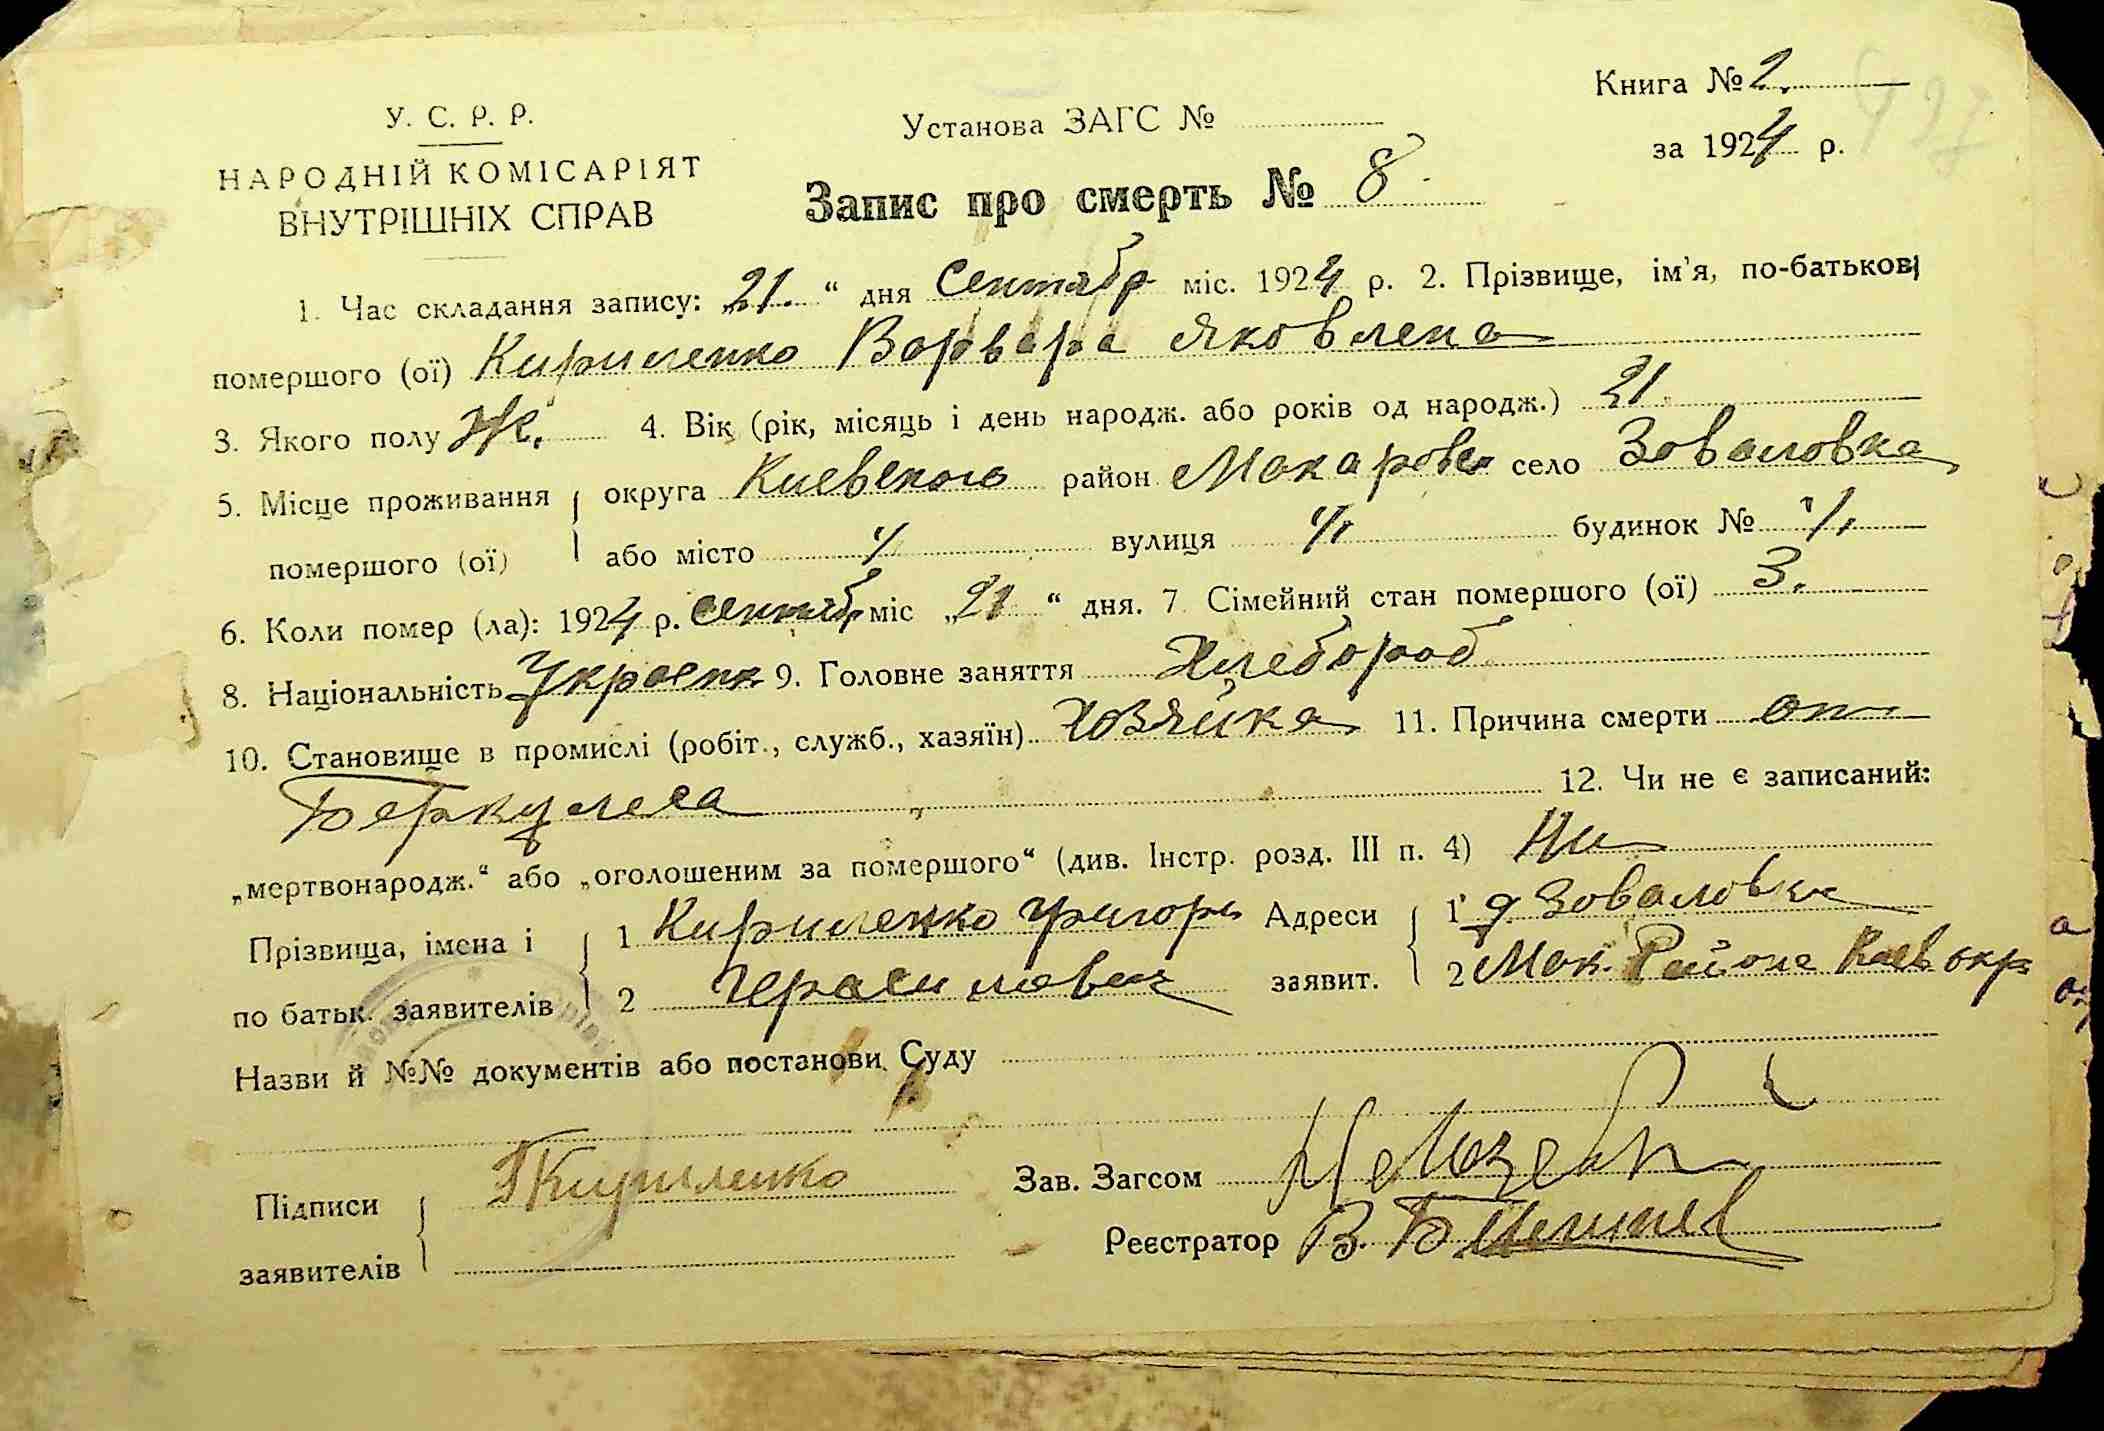 Книга № 2.
У. С. Р. Р.
Установа ЗАГС №
за 1924 р.
НАРОДНІЙ КОМІСАРІЯТ
ВНУТРІШНІХ СПРАВ
Запис про смерть № 8
1. Час складання запису: „21.“ дня Сентябр міс. 1924 р. 2. Прізвище, ім'я, по-батькові
помершого (ої) Кириленко Варвара Яковлена
3. Якого полу Ж. 4. Вік (рік, місяць і день народж. або років од народж.) 21.
5. Місце проживання округа Киевского район Макаровск село Зоваловка
помершого (ої) або місто // вулиця // будинок № //
6. Коли помер (ла): 1924 р. Сентябр міс „21“ дня. 7 Сімейний стан помершого (ої) З.
8. Національність Украенк 9. Головне заняття Хлебороб
10. Становище в промислі (робіт., служб., хазяїн) Хозяйка 11. Причина смерти от
Беркулеса 12. Чи не є записаний:
„мертвонародж.“ або „оголошеним за помершого“ (див. Інстр. розд. III п. 4) Ни
Прізвища, імена і 1 Кириленко Григорий Адреси 1 д Зоваловка
по батьк. заявителів 2 Герасимович заявит. 2 Мак. Района Киев окр
Назви й №№ документів або постанови Суду
Підписи Г Кириленко Зав. Загсом
заявителів Реєстратор В.